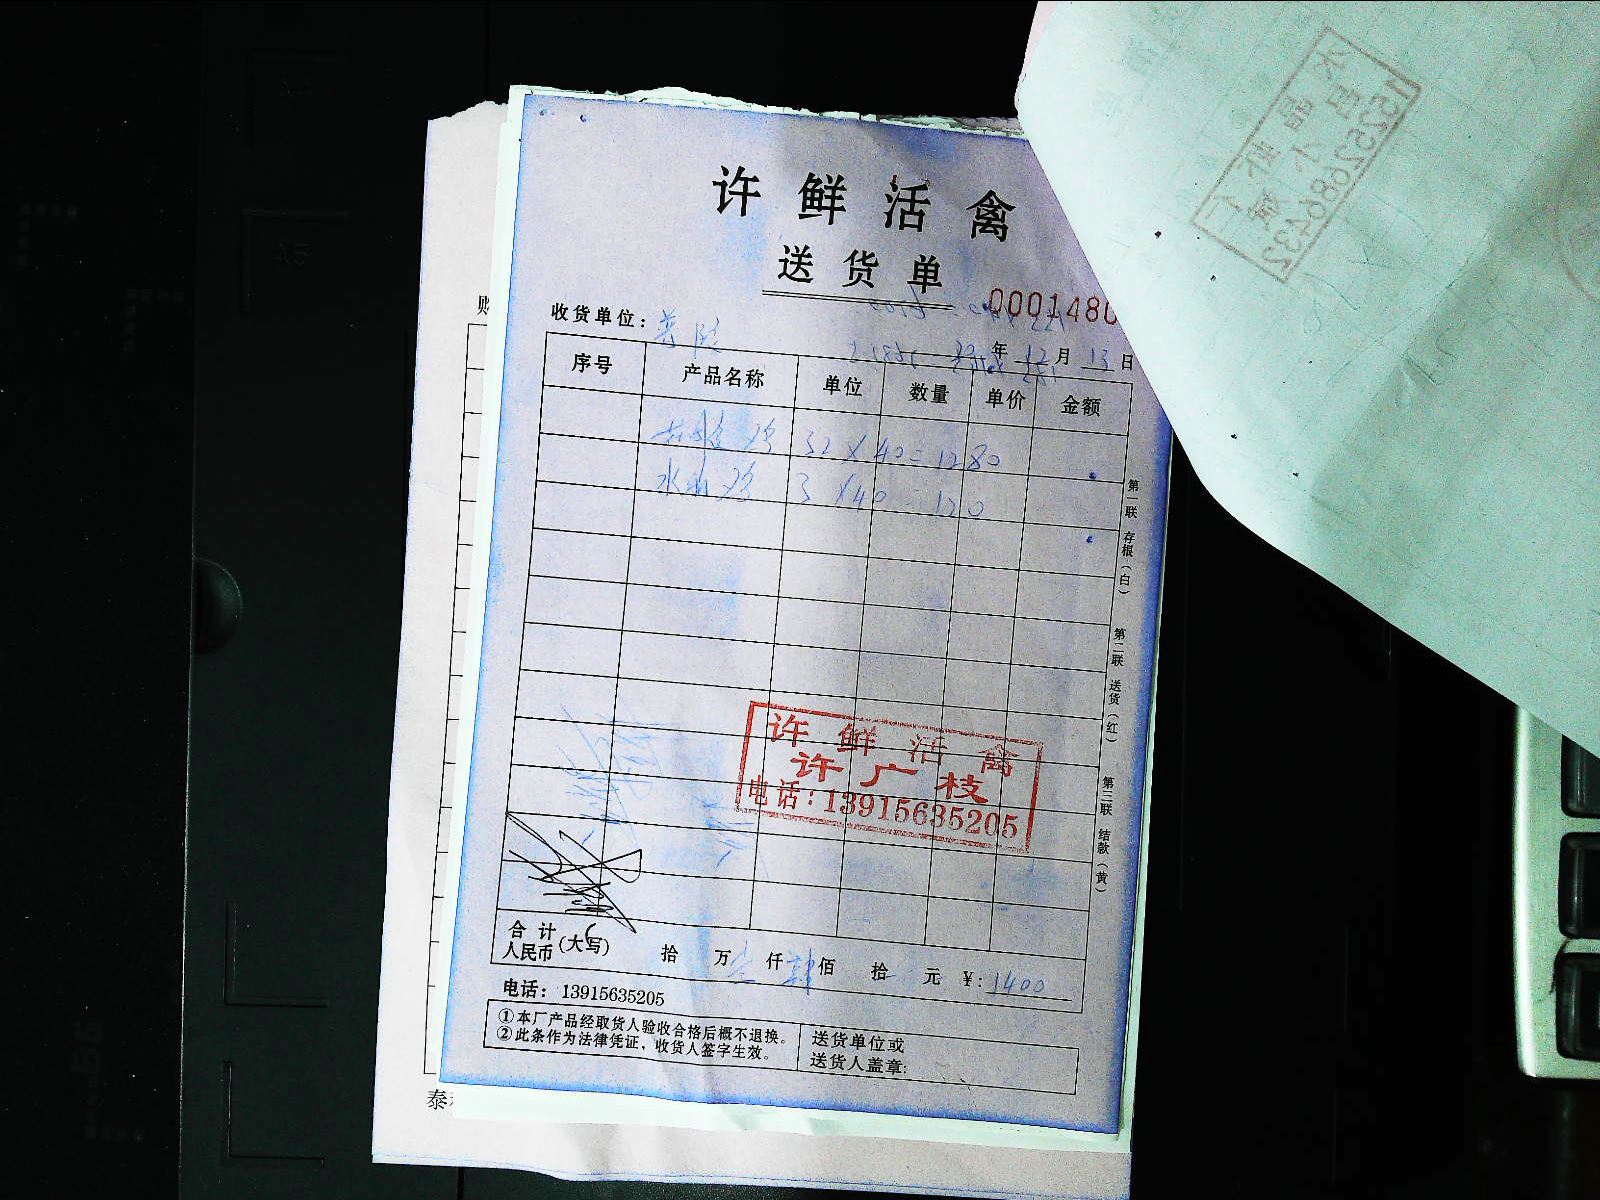 许鲜活禽
送货单
000148
收货单位：
年 12 月 13 日
序号 产品名称 单位 数量 单价 金额
鸡 32×40=1280
水 鸡 3×40 120
第一联 存根（白）
第二联 送货（红）
第三联 结款（黄）
许鲜活禽
许广枝
电话：13915635205
合计
人民币（大写） 拾 万 仟 肆佰 拾 元 ¥：1400
电话：13915635205
①本厂产品经取货人验收合格后概不退换。
②此条作为法律凭证，收货人签字生效。
送货单位或
送货人盖章：
泰
15252686432